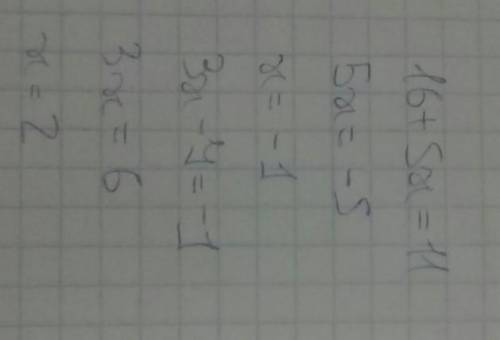 16 + 5x = 11
5x = -5
x = -1
3x - y = -1
3x = 6
x = 2